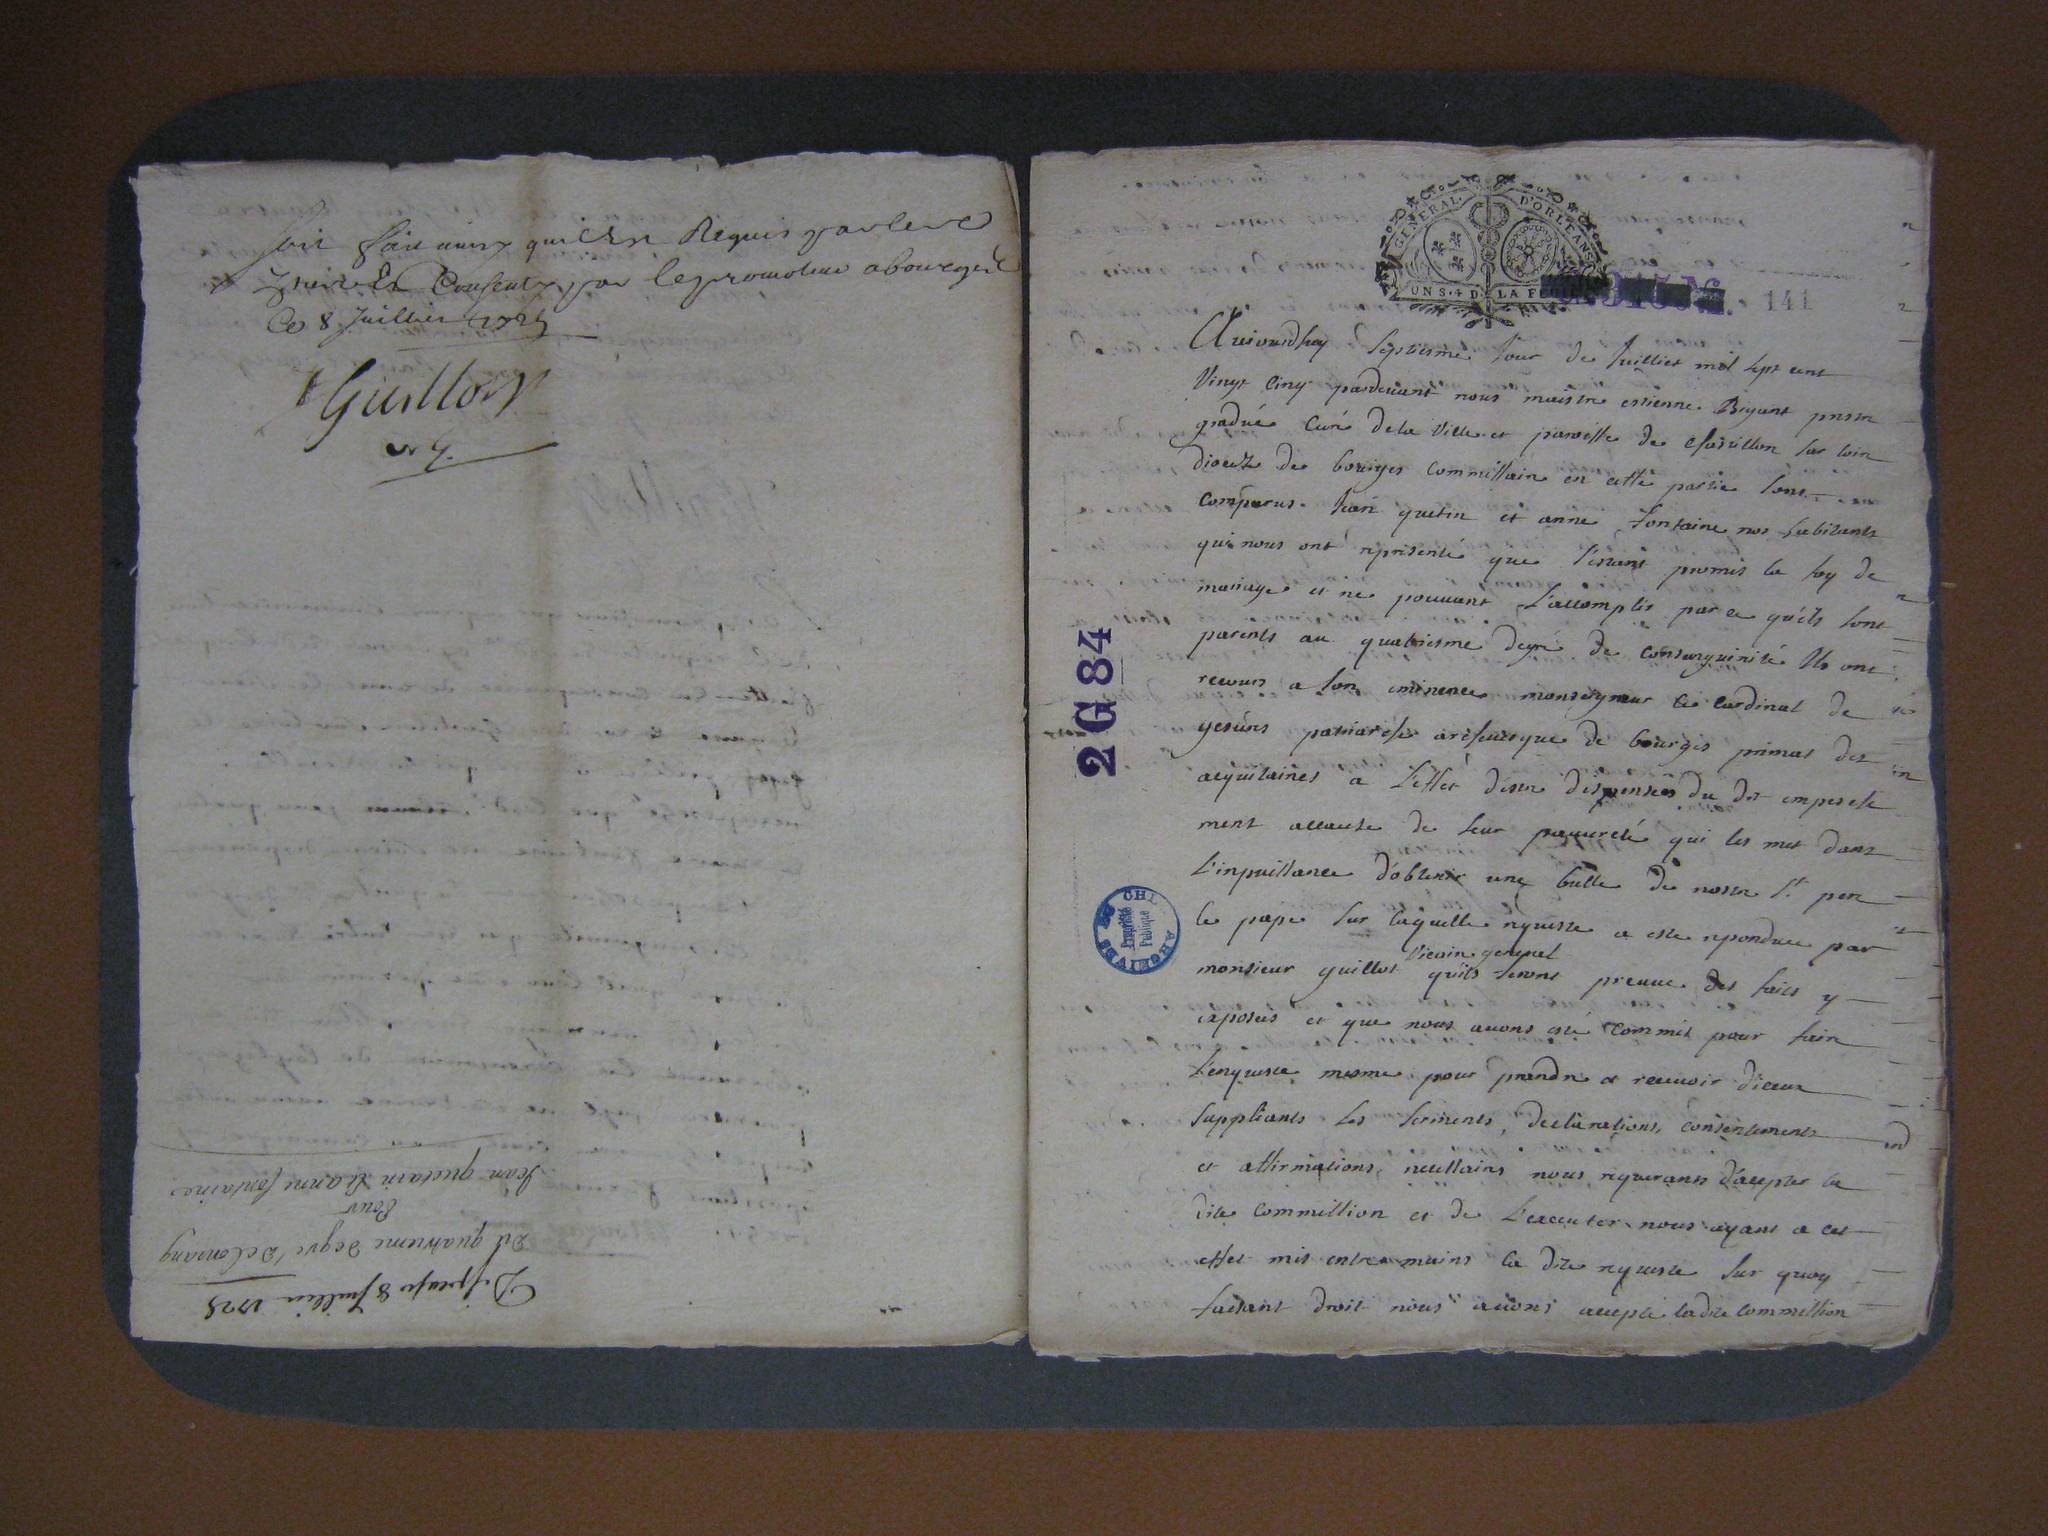 soit fait ainsy qu'il est Requis par les
et Consenty par le promoteur a bourges
Ce 8 Juillet 1725
Guillot
v. g.
Dispense 8 Juillet 1725
du quatrieme degré de Consang
Pour
Jean guetain & anne fontaine
GENERAL. D'ORLEANS
UN S. 4 D. LA FEUI
141
2G 84
ARCHIVES DU CHER
Propriété
Publique
Aujourdhuy septiesme Jour de Juillet mil sept cent
vingt cinq pardevant nous maistre estienne Bigant prestre
gradué Curé de la ville et paroisse de chatillon sur loin
diocèze de bourges Commissaire en cette partie sont
Comparus Jean guetin et anne fontaine nos habitants
qui nous ont représenté que s'estant promis la foy de
mariage et ne pouuant L'accomplir par ce qu'ils sont
parents au quatriesme degré de consanguinité Ils ont
recours a son eminence monseigneur le cardinal de
gesures patriarche archeuesque de bourges primat des
acquitaines a L'effet destre dispensées du dit empesche
ment acause de leur pauureté qui les met dans
L'inpuissance d'obtenir une bulle de nostre St. pere
le pape sur laquelle requeste a este repondue par
monsieur guillot vicain general qu'ils feront preuue des faits y
exposées et que nous auons esté commis pour faire
L'enqueste mesme pour prendre et receuoir diceux
suppliants les serments, declarations, consentements
et affirmations, necessaires nous requerants d'accepter la
dite commission et de L'executer nous ayant a cet
effet mis entre mains la dite requeste sur quoy
faisant droit nous auons accepté ladite commission